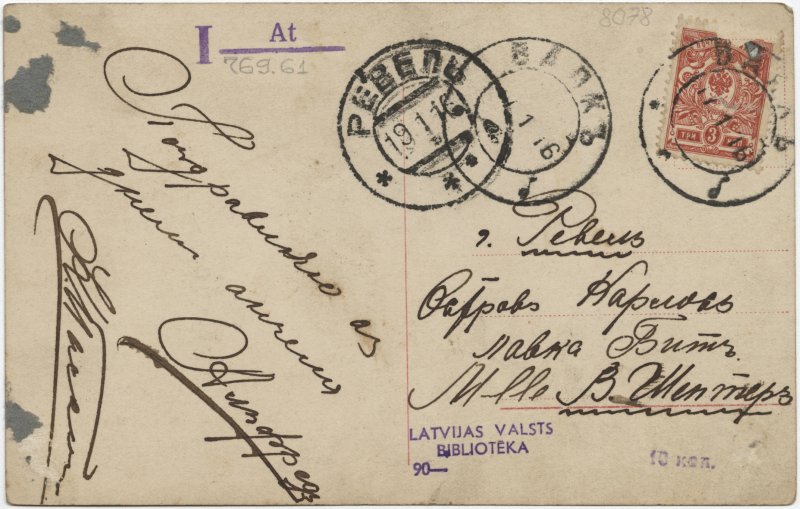 8078
I At
769.61
РЕВЕЛЬ
19.1.16
ВАЛКЪ
1 16
ВАЛКЪ
1 16
ТРИ 3
Поздравляю съ
днемъ ангела
Альфредъ
г. Ревель
Островъ Карловъ
лавка Битъ
Mlle В. Шептеръ
LATVIJAS VALSTS
BIBLIOTĒKA
90—
10 коп.